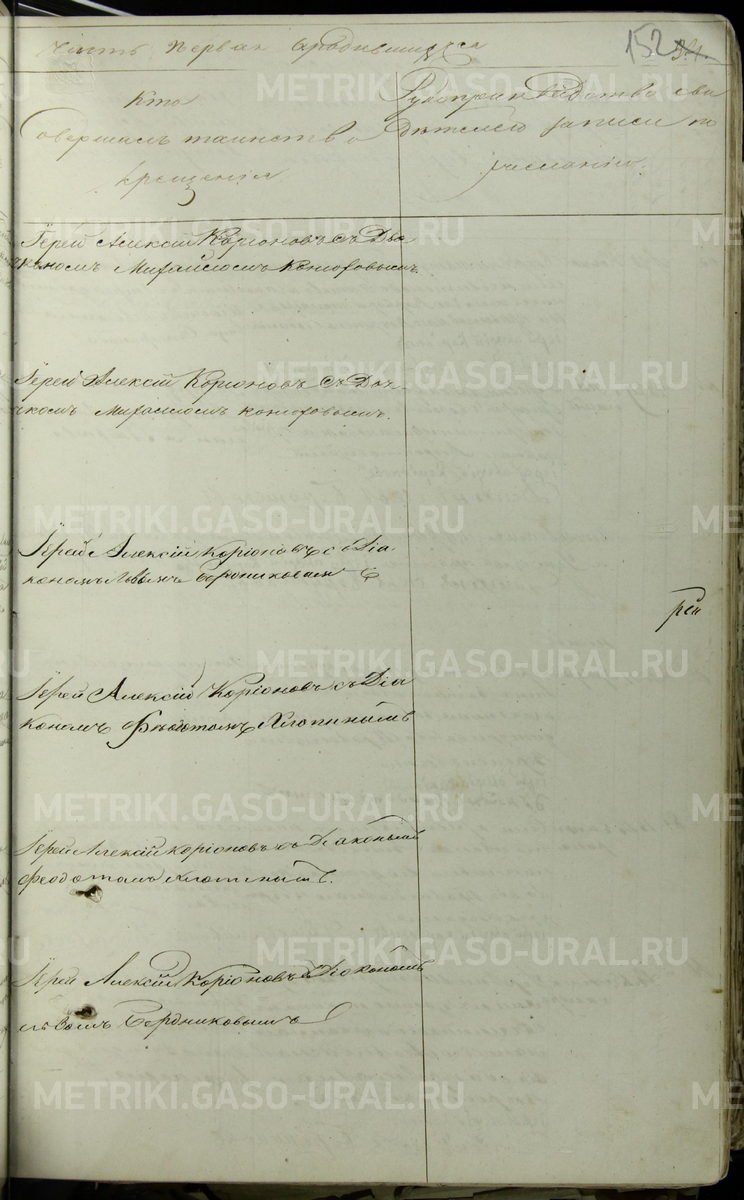 Часть первая о родившихся
152
Кто
совершалъ таинство
крещенія
Рукоприкладство сви
дѣтелей записи по
желанію
Іерей Алексій Коріоновъ съ Діа
кономъ Михаиломъ
Іерей Алексій Коріоновъ съ Дья
чкомъ Михаиломъ
Іерей Алексій Коріоновъ съ Діа
кономъ Львомъ Бердниковымъ
Іерей Алексій Коріоновъ съ Діа
кономъ Ѳеодотомъ Хлопинымъ
Іерей Алексій Коріоновъ съ Діакономъ
Феодотомъ Хлопинымъ.
Іерей Алексій Коріоновъ съ Діакономъ
Львомъ Бердниковымъ
METRIKI.GASO-URAL.RU